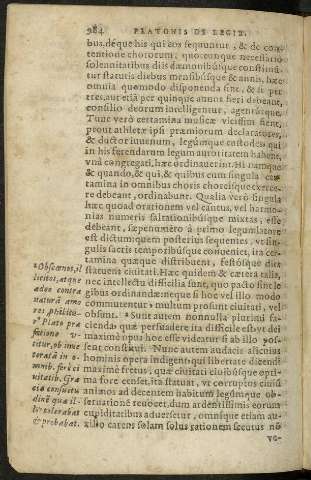 984 PLATONIS DE LEGIB.
bus, déque his qui eos sequuntur, & de con-
tentione chororum, quocunque necessario
solennitatibus diis dæmonibúsque constitu-
tur statutis diebus mensibúsque & annis, hæc
omnia quomodo disponenda sint, & si per
tres, aut etiã per quinque annos fieri debeant,
consilio deorum intelligentur, agentúrque.
Tunc verò certamina musicæ vicissim fient,
prout athletæ ipsi præmiorum declaratores,
& ductor iuuenum, legúmque custodes qui
in his ferendarum legum autoritatem habent,
vnà congregati, hæc ordinauerint. Hi nunque
& quando, & qui, & quibus cum singula cer-
tamina in omnibus choris choreísque exerce-
re debeant, ordinabunt. Qualia verò singula
hæc quoad orationem vel cantus, vel harmo-
nias numeris saltationibúsque mixtas, esse
debeant, sæpenumero à primo legumlatore
est dictum: quem posterius sequentes, vt sin-
gulis sacris temporibúsque conueniet, ita cer-
tamina quæque distribuent, festósque dies
statuent ciuitati. Hæc quidem & cætera talia,
nec intellectu difficilia sunt, quo pacto sint le-
gibus ordinandæ: neque si hoc vel illo modo
commutentur, multum prosunt ciuitati, vel
obsunt. Sunt autem nonnulla plurimi fa-
cienda quæ persuadere ita difficile est, vt dei
maximè opus hoc esse videatur si ab illo pos-
sent constitui. Nunc autem audacis alicuius
hominis opera indigent: qui libertate dicendi
maximè fretus, quæ ciuitati ciuibúsque opti-
ma fore censet, ita statuat, vt corruptos ciuiũ
animos ad decentem habitum legúmque ob-
seruationé reuocet, dum ardentissimis eorum
cupiditatibus aduersetur, omnique etiam au-
xilio carens solam solus rationem secutus nõ
ve-
Obscœnos, il
licitos, atque
adeo contra
naturã amo
res, philoso-
phus Plato præ
fatione v-
titur, ob inue
teratã in o-
mnib. ferè ci
uitatib. Græ
cia consuetu
dinẽ quæ il-
li tolerabat
& probabat.